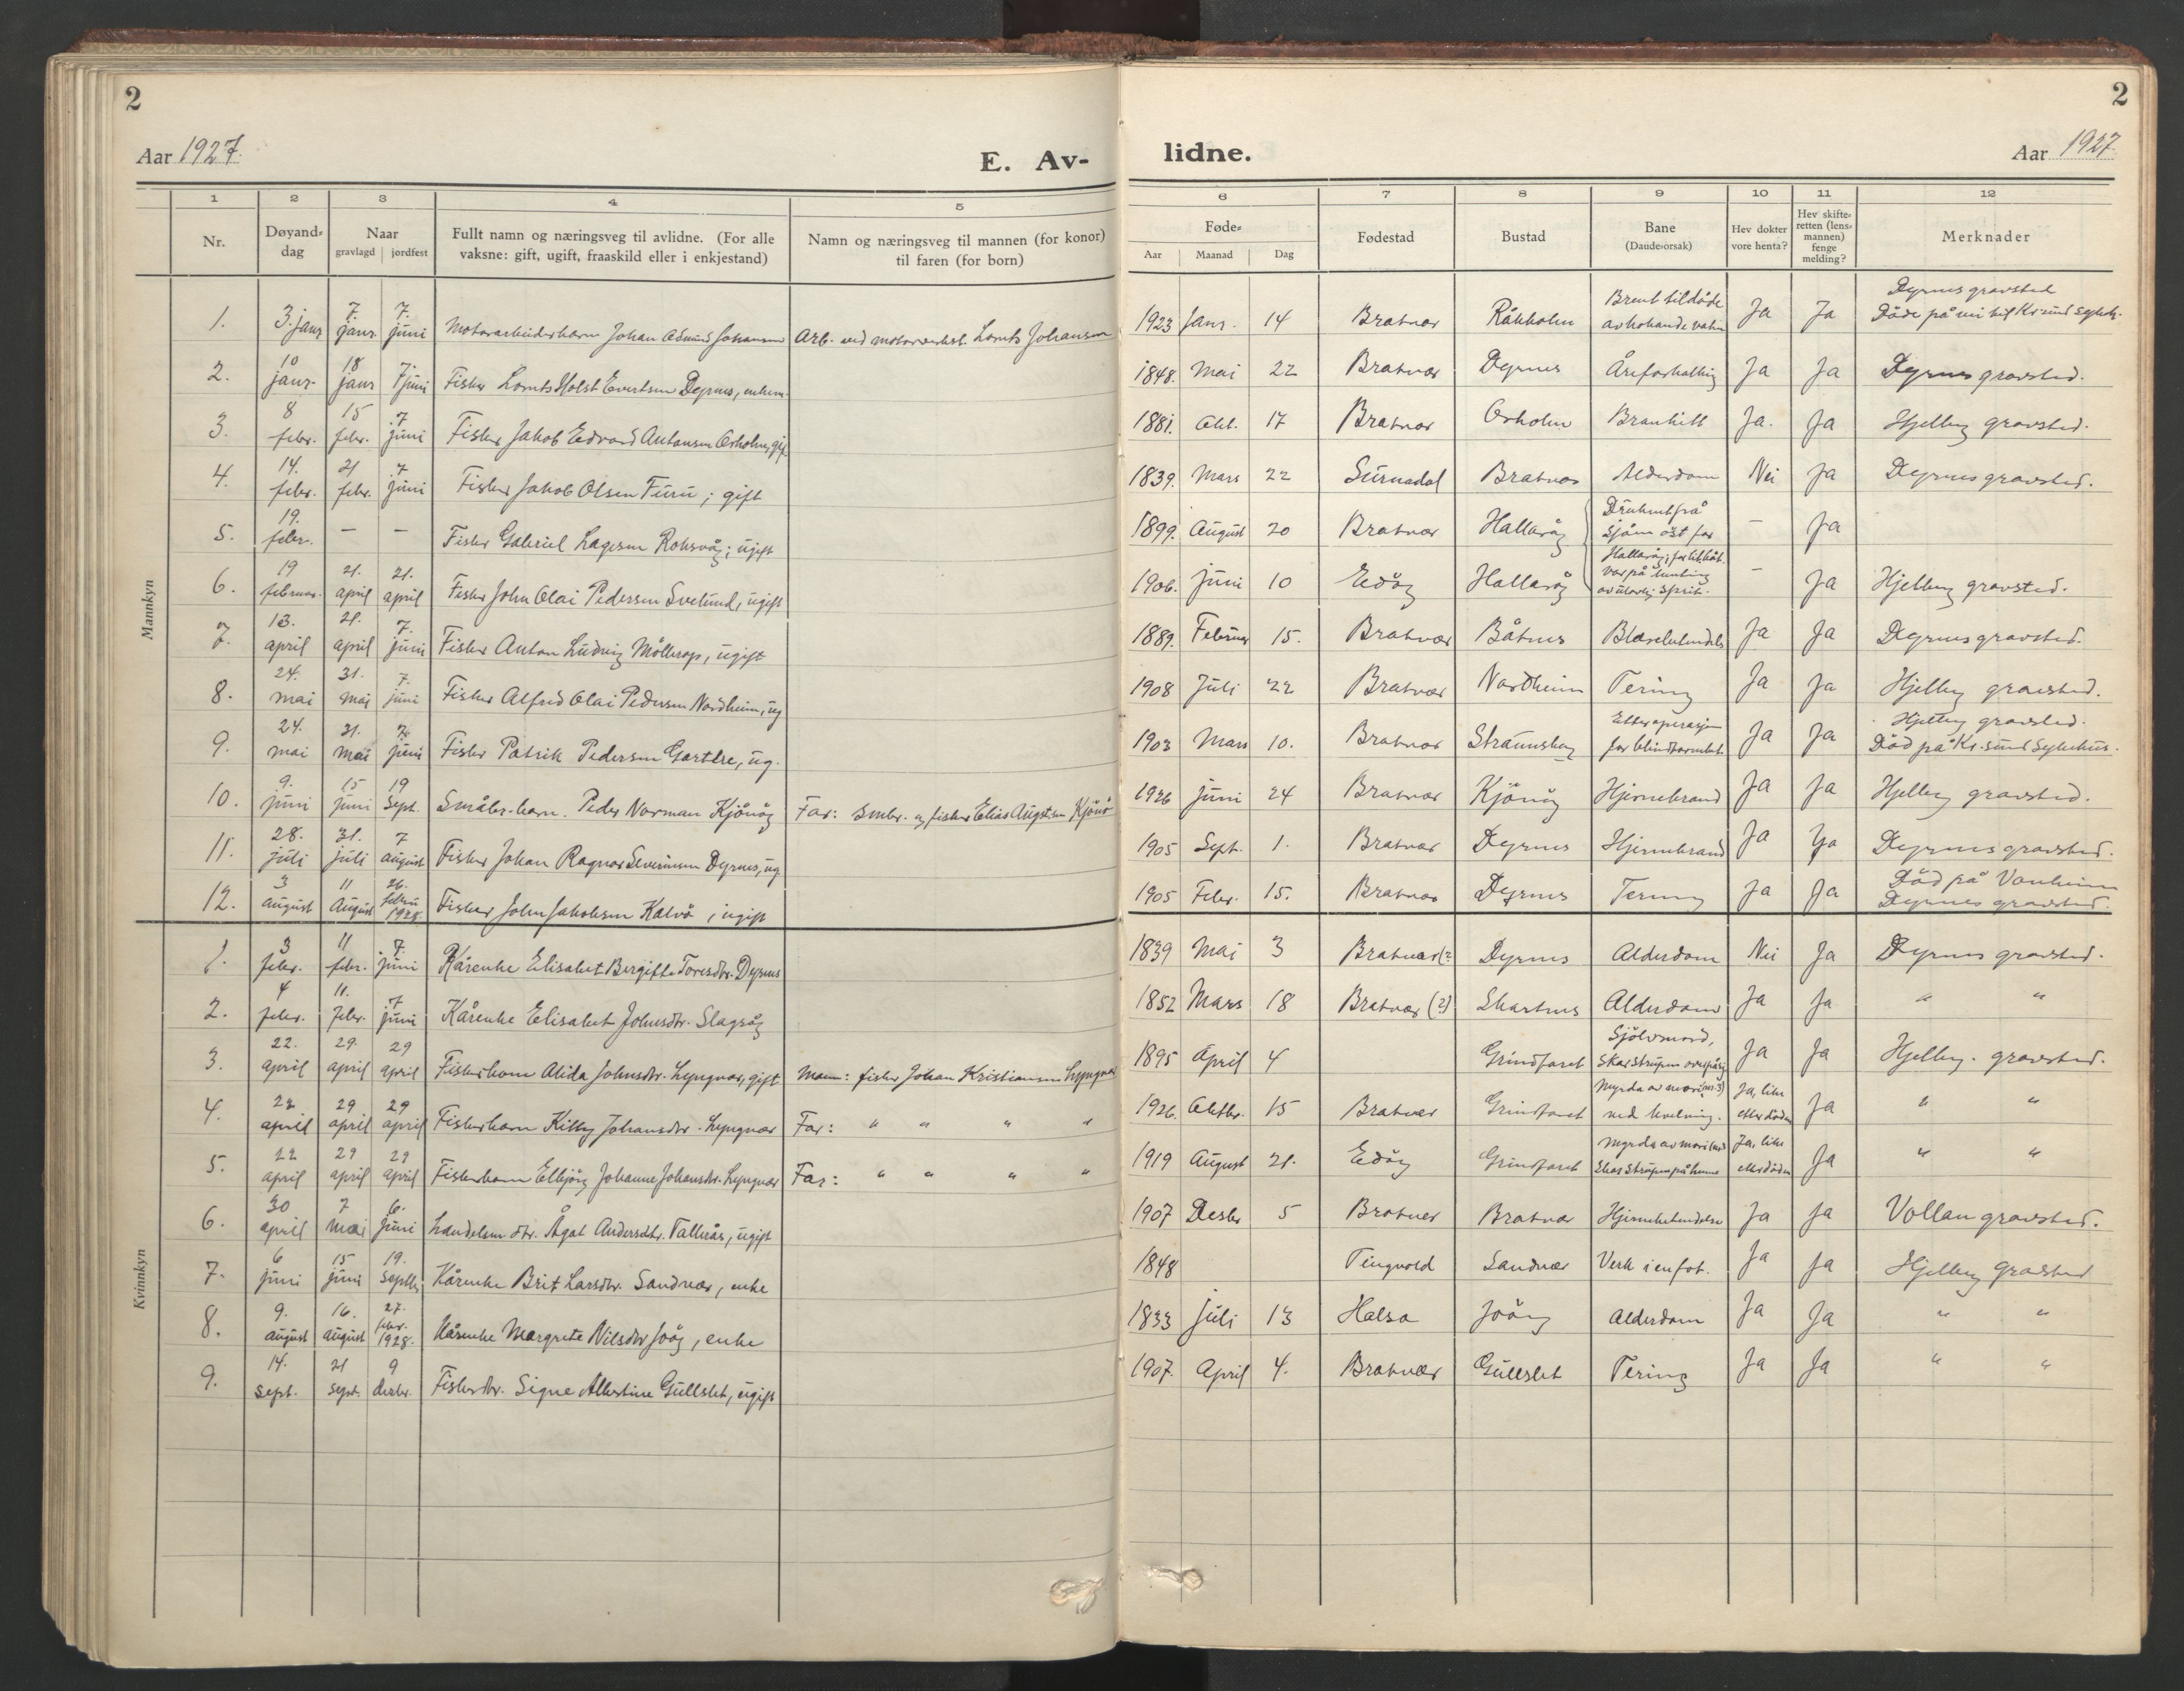 2
2
Aar 1927.
E. Av-
lidne.
Aar 1927.
1 2 3 4 5 6 7 8 9 10 11 12
Nr.
Døyand-
dag
Naar
gravlagd jordfest
Fullt namn og næringsveg til avlidne. (For alle
vaksne: gift, ugift, fraaskild eller i enkjestand)
Namn og næringsveg til mannen (for konor)
til faren (for born)
Føde-
Aar Maanad Dag
Fødestad
Bustad
Bane
(Daude-orsak)
Hev dokter
vore henta?
Hev skifte-
retten (lens-
mannen)
fenge
melding?
Merknader
Mannkyn
1. 3. janr 7. janr. 7. juni Motorarbeiderbarn Johan Johansen Arb. ved motorverkst. Lornts Johansen 1923 Janr. 14 Bratvær Råkholm Brent til døde av kokande vatn Ja Ja Dyrnes gravsted
Døde på vei til Kr.sund sykeh.
2. 10 janr. 18 janr 7 juni Fisker Lornts Holst Evertsen Dyrnes, enkem. 1848. Mai 22 Bratvær Dyrnes Åreforkalking Ja Ja Dyrnes gravsted.
3. 8 febr. 15 febr. 7 juni Fisker Jakob Edvard Antonsen Orholm, gif. 1881. Okt. 17 Bratvær Orholm Bronkitt Ja. Ja Hjelløy gravsted.
4. 14. febr. 21 febr. 7 juni Fisker Jakob Olsen Furu; gift 1839. Mars 22 Surnadal Bratvær Alderdom Nei Ja Dyrnes gravsted.
5. 19. febr. – – Fisker Gabriel Lagesen Roksvåg; ugift 1899. August 20 Bratvær Hallarøy Druknet på sjøen øst for – Ja
6. 19 februar. 21. april 21. april Fisker John Olai Pedersen Svelund, ugift 1906. juni 10 Edøy Hallarøy Hallarøy; forlist båt. Var på henting av ulovlig sprit. – Ja Hjelløy gravsted.
7. 13. april 21. april 7. juni Fisker Anton Ludvig Møllerop, ugift 1889. Februar 15. Bratvær Båtnes Blærebetendels Ja Ja Dyrnes gravsted.
8. 24. mai 31. mai 7. juni Fisker Alfred Olai Pedersen Nordheim, ug 1908 Juli 22 Bratvær Nordheim Tering Ja Ja Hjelløy gravsted.
9. 24. mai 31. mai 7. juni Fisker Patrik Pedersen Gartlre, ug. 1903 Mars 10. Bratvær Straumshey Etter operasjon for blindtarmbet. Ja Ja Hjelløy gravsted.
Død på Kr.sund Sykehus.
10. 9. juni 15 juni 19 Sept. Småbr.-barn. Peder Norman Kjönøy Far: Smbr. og fisker Elias Augstisen Kjönø 1926 juni 24 Bratvær Kjönøy Hjernebrand Ja Ja Hjelløy gravsted.
11. 28. juli 31. juli 7 august Fisker Johan Ragnar Severinsen Dyrnes, ug. 1905 Sept. 1. Bratvær Dyrnes Hjernebrand Ja Ja Dyrnes gravsted.
12. 3 august 11 August 26. febru 1928. Fisker John Jakobsen Kalvø, ugift 1905 Febr. 15. Bratvær Dyrnes Tering Ja Ja Død på Vonheim
Dyrnes gravsted.
Kvinnkyn
1. 3 febr. 11 febr. 7 juni Kårenke Elisabet Bergitte Toresdtr. Dyrnes 1839 Mai 3 Bratvær (? Dyrnes Alderdom Nei Ja Dyrnes gravsted.
2. 4 febr. 11. febr. 7 juni Kårenke Elisabet Johnsdtr. Slagsøy 1852 Mars 18 Bratvær (?) Skartnes Alderdom Ja Ja " "
3. 22. april 29. april 29 april Fiskerkone Alida Johnsdtr. Lyngvær, gift Mann: fisker Johan Kristiansen Lyngvær 1895 April 4 Grindfaret Sjölvmord, Skar strupen over på sig Ja Ja Hjelløy. gravsted.
4. 22 april 29 april 29 april Fiskerbarn Kitty Johansdtr. Lyngvær Far: " " " " 1926. Oktbr. 15 Bratvær Grindfaret Myrda av mori (nr. 3) ved kvelning. Ja, like etter döden Ja " "
5. 22 april 29 april 29 april Fiskerbarn Elbjörg Johanne Johansdtr. Lyngvær Far: " " " " 1919 August 21. Edøy Grindfaret Myrda av mori Skar strupen på henne Ja, like etter döden Ja " "
6. 30 april 7 mai 6. juni Landelsm dtr. Ågat Andersdtr. Vallerås, ugift 1907 Desbr 5 Bratvær Bratvær Hjernebetendelse Ja Ja Vollan gravsted.
7. 6 juni 15 juni 19. Septbr Kårenke Brit Larsdtr. Sandvær, enke 1848 Tingvold Sandvær Verk i en fot. Ja Ja Hjelløy gravsted
8. 9. august 16. august 27. febr. 1928. Kårenke Margrete Nilsdtr Joøy, enke 1833 juli 13 Halsa Joøy Alderdom Ja Ja " "
9. 14. sept. 21 sept. 9 desbr. Fiskerdtr. Signe Albertine Gullslet, ugift 1907. April 4. Bratvær Gullslet Tering Ja Ja " "